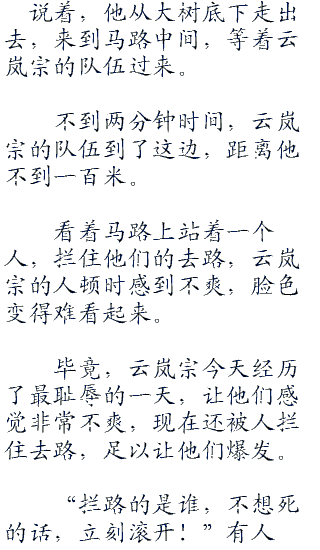 说着，他从大树底下走出
去，来到马路中间，等着云
岚宗的队伍过来。
不到两分钟时间，云岚
宗的队伍到了这边，距离他
不到一百米。
看着马路上站着一个
人，拦住他们的去路，云岚
宗的人顿时感到不爽，脸色
变得难看起来。
毕竟，云岚宗今天经历
了最耻辱的一天，让他们感
觉非常不爽，现在还被人拦
住去路，足以让他们爆发。
“拦路的是谁，不想死
的话，立刻滚开！”有人